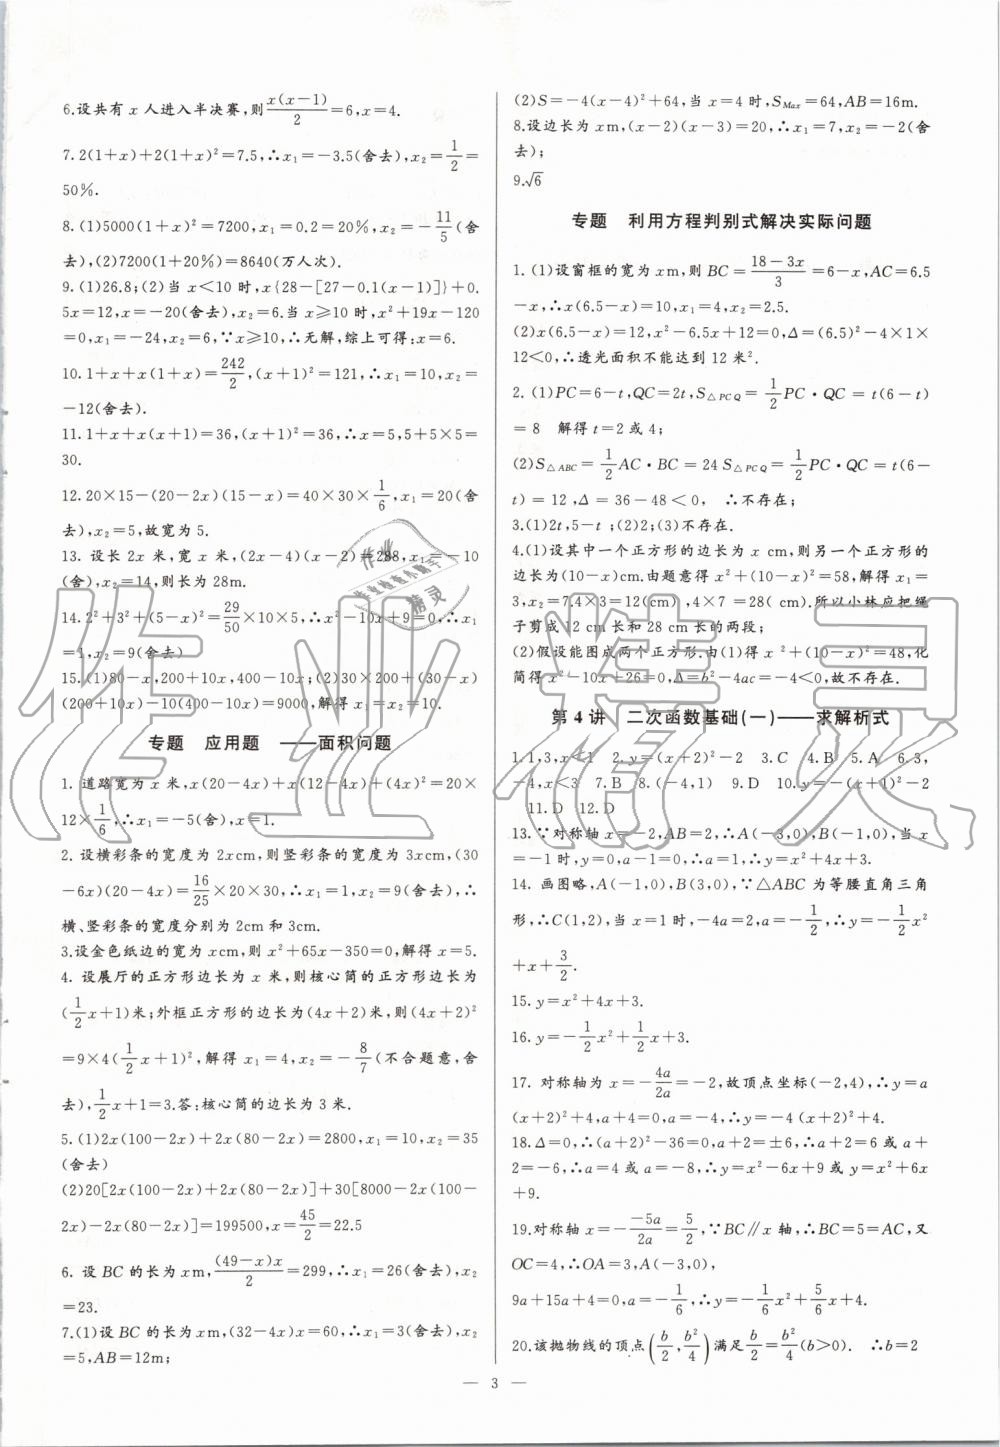 6.设共有 x 人进入半决赛,则x(x−1)/2=6,x=4.
7.2(1+x)+2(1+x)²=7.5,∴x₁=−3.5(舍去),x₂=1/2=
50%.
8.(1)5000(1+x)²=7200,x₁=0.2=20%,x₂=−11/5(舍
去),(2)7200(1+20%)=8640(万人次).
9.(1)26.8;(2)当 x<10 时,x{28−[27−0.1(x−1)]}+0.
5x=12,x=−20(舍去),x₂=6.当 x≥10 时,x²+19x−120
=0,x₁=−24,x₂=6,∵x≥10,∴无解,综上可得:x=6.
10.1+x+x(1+x)=242/2,(x+1)²=121,∴x₁=10,x₂=
−12(舍去).
11.1+x+x(x+1)=36,(x+1)²=36,∴x=5,5+5×5=
30.
12.20×15−(20−2x)(15−x)=40×30×1/6,x₁=20(舍
去),x₂=5,故宽为 5.
13. 设长 2x 米,宽 x 米,(2x−4)(x−2)=288,x₁=−10
(舍),x₂=14,则长为 28m.
14.2²+3²+(5−x)²=29/50×10×5,∴x²−10x+9=0,∴x₁
=1,x₂=9(舍去)
15.(1)80−x,200+10x,400−10x;(2)30×200+(30−x)
(200+10x)−10(400−10x)=9000,解得 x₁=x₂=10.
专题 应用题 ——面积问题
1. 道路宽为 x 米,x(20−4x)+x(12−4x)+(4x)²=20×
12×1/6,∴x₁=−5(舍),x=1.
2. 设横彩条的宽度为 2xcm,则竖彩条的宽度为 3xcm,(30
−6x)(20−4x)=16/25×20×30,∴x₁=1,x₂=9(舍去),∴
横、竖彩条的宽度分别为 2cm 和 3cm.
3.设金色纸边的宽为 xcm,则 x²+65x−350=0,解得 x=5.
4. 设展厅的正方形边长为 x 米,则核心筒的正方形边长为
(1/2x+1)米;外框正方形的边长为(4x+2)米,则(4x+2)²
=9×4(1/2x+1)²,解得 x₁=4,x₂=−8/7(不合题意,舍
去),1/2x+1=3.答:核心筒的边长为 3 米.
5.(1)2x(100−2x)+2x(80−2x)=2800,x₁=10,x₂=35
(舍去)
(2)20[2x(100−2x)+2x(80−2x)]+30[8000−2x(100−
2x)−2x(80−2x)]=199500,x=45/2=22.5
6. 设 BC 的长为 xm,(49−x)x/2=299,∴x₁=26(舍去),x₂
=23.
7.(1)设 BC 的长为 xm,(32−4x)x=60,∴x₁=3(舍去),x₂
=5,AB=12m;
(2)S=−4(x−4)²+64,当 x=4 时,S_Max=64,AB=16m.
8.设边长为 xm,(x−2)(x−3)=20,∴x₁=7,x₂=−2(舍
去);
9.√6
专题 利用方程判别式解决实际问题
1. (1)设窗框的宽为 xm,则 BC=18−3x/3=6−x,AC=6.5
−x,∴x(6.5−x)=10,x₁=4,x₂=2.5.
(2)x(6.5−x)=12,x²−6.5x+12=0,Δ=(6.5)²−4×1×
12<0,∴透光面积不能达到 12 米².
2. (1)PC=6−t,QC=2t,S△PCQ=1/2PC·QC=t(6−t)
=8 解得 t=2 或 4;
(2)S△ABC=1/2AC·BC=24 S△PCQ=1/2PC·QC=t(6−
t)=12,Δ=36−48<0, ∴不存在;
3.(1)2t,5−t;(2)2;(3)不存在.
4.(1)设其中一个正方形的边长为 x cm,则另一个正方形的
边长为(10−x)cm.由题意得 x²+(10−x)²=58,解得 x₁=
3,x₂=7.4×3=12(cm),4×7=28(cm).所以小林应把绳
子剪成 12 cm 长和 28 cm 长的两段;
(2)假设能围成两个正方形.由(1)得 x²+(10−x)²=48,化
简得 x²−10x+26=0,Δ=b²−4ac=−4<0,故不存在.
第 4 讲 二次函数基础(一)——求解析式
1.1,3,x<1 2.y=(x+2)²−2 3.C 4.B 5.A 6.3,
−4,x<3 7.B 8.(−4,1) 9.D 10.y=−(x+1)²−2
11.D 12.D
13.∵对称轴 x=−2,AB=2,∴A(−3,0),B(−1,0),当 x
=−1 时,y=0,a−1=0,∴a=1,∴y=x²+4x+3.
14. 画图略,A(−1,0),B(3,0),∵△ABC 为等腰直角三角
形,∴C(1,2),当 x=1 时,−4a=2,a=−1/2,∴y=−1/2x²
+x+3/2.
15.y=x²+4x+3.
16.y=−1/2x²+1/2x+3.
17. 对称轴为 x=−4a/2a=−2,故顶点坐标(−2,4),∴y=a
(x+2)²+4,a+4=0,a=−4,∴y=−4(x+2)²+4.
18.Δ=0,∴(a+2)²−36=0,a+2=±6,∴a+2=6 或 a+
2=−6,∴a=4 或 a=−8,∴y=x²−6x+9 或 y=x²+6x
+9.
19.对称轴 x=−−5a/2a=5/2,∵BC∥x 轴,∴BC=5=AC,又
OC=4,∴OA=3,A(−3,0),
9a+15a+4=0,a=−1/6,∴y=−1/6x²+5/6x+4.
20.该抛物线的顶点(b/2,b²/4)满足b/2=b²/4(b>0). ∴b=2
— 3 —
作业精灵
作业
作业检查小助手
精灵